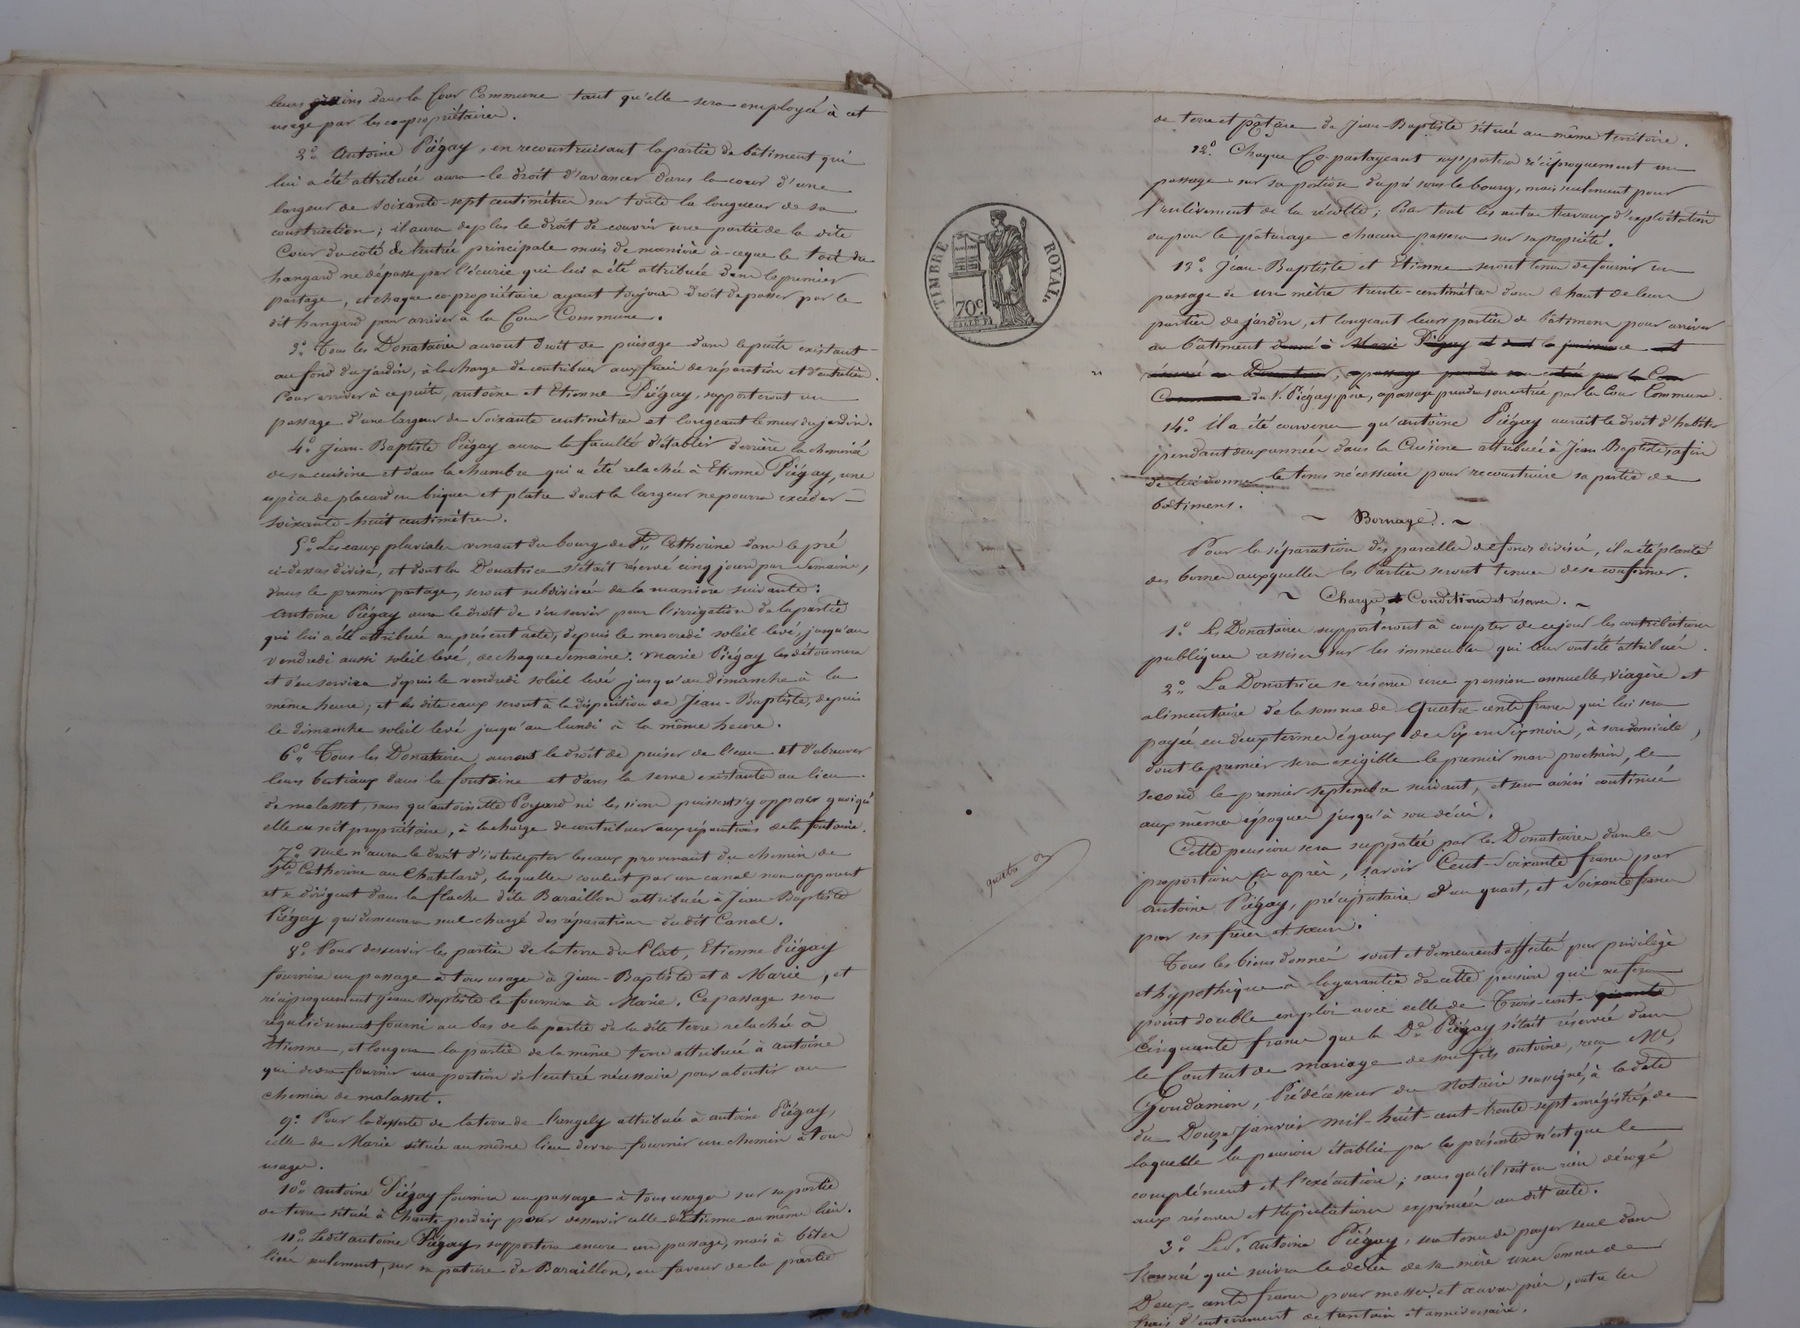 leurs grains dans la Cour Commune tant qu'elle sera employée à cet
usage par les copropriétaires.
2° Antoine Piégay, en reconstruisant la partie de bâtiment qui
lui a été attribuée aura le droit d'avancer dans la cour d'une
largeur de soixante-sept centimètres sur toute la longueur de sa
construction; il aura de plus le droit de couvrir une partie de la dite
Cour du côté de l'entrée principale mais de manière à ce que le toit du
hangard ne dépasse pas l'écurie qui lui a été attribuée dans le premier
partage, et chaque copropriétaire ayant toujours droit de passer par le
dit hangard pour arriver à la Cour Commune.
3° Tous les Donataires auront droit de puisage dans le puits existant
au fond du Jardin, à la charge de contribuer aux frais de réparation et d'entretien.
Pour accéder à ce puits, antoine et Etienne Piégay, supporteront un
passage d'une largeur de soixante centimètres et longeant le mur du jardin.
4° Jean-Baptiste Piégay aura la faculté d'établir derrière la cheminée
de sa cuisine et dans la chambre qui a été relachée à Etienne Piégay, une
espèce de placard en briques et platre dont la largeur ne pourra excéder
soixante-huit centimètres.
5° Les eaux pluviales venant du bourg de Ste Catherine dans le pré
ci-dessus divisé, et dont la Donatrice s'était réservé cinq jours par semaine,
dans le premier partage, seront subdivisées de la manière suivante:
Antoine Piégay aura le droit de s'en servir pour l'irrigation de la partie
qui lui a été attribuée au présent acte, depuis le mercredi soleil levé, jusqu'au
vendredi aussi soleil levé, de chaque semaine. Marie Piégay les détournera
et s'en servira depuis le vendredi soleil levé jusqu'au dimanche à la
même heure; et les dites eaux seront à la disposition de Jean-Baptiste, depuis
le dimanche soleil levé jusqu'au lundi à la même heure.
6° Tous les Donataires auront le droit de puiser de l'eau et d'abreuver
leurs bestiaux dans la fontaine et dans la serve existante au lieu
de malasset, sans qu'antoinette Poyard ni les siens puissent s'y opposer quoiqu'
elle en soit propriétaire, à la charge de contribuer aux réparations de la fontaine.
7° Nul n'aura le droit d'intercepter les eaux provenant du chemin de
Ste Catherine au Chatelard, lesquelles coulent par un canal non apparent
et se dirigent dans la flache dite Baraillon attribuée à Jean-Baptiste
Piégay qui demeurera seul chargé des réparations du dit Canal.
8° Pour desservir les parties de la terre du Plat, Etienne Piégay
fournira un passage à tous usages à Jean-Baptiste et à Marie, et
réciproquement Jean Baptiste le fournira à Marie. Ce passage sera
régulièrement fourni au bas de la partie de la dite terre relachée à
Etienne, et longera la partie de la même terre attribuée à antoine
qui devra fournir une portion de l'entrée nécessaire pour aboutir au
chemin de malasset.
9° Pour la desserte de la terre de Rangely attribuée à antoine Piégay,
celle de Marie située au même lieu devra fournir un chemin à tous
usages.
10° Antoine Piégay fournira un passage à tous usages sur sa partie
de terre située à Chante perdrix pour desservir celle d'Etienne au même lieu.
11° Le dit antoine Piégay supportera encore un passage, mais à bêtes
liées seulement, sur sa pature de Baraillon, en faveur de la partie
TIMBRE ROYAL
70c
quatre
de terre et pâture de Jean-Baptiste située au même territoire.
12° Chaque Co-partageant supportera réciproquement un
passage sur sa portion du pré sous le bourg, mais seulement pour
l'enlèvement de la récolte; Pour tout les autres travaux d'exploitation
ou pour le pâturage chacun passera sur sa propriété.
13° Jean-Baptiste et Etienne seront tenus de fournir un
passage de un mètre trente-centimètres dans le haut de leurs
parties de jardin, et longeant leurs parties de bâtimens pour arriver
au bâtiment donné à Marie Piégay et dont la jouissance est
réservée au Donateur, ce passage prendra son entrée par la Cour
Commune du Sr Piégay, père, ce passage prendra son entrée par la Cour Commune.
14° Il a été convenu qu'antoine Piégay aurait le droit d'habiter
pendant deux années dans la Cuisine attribuée à Jean Baptiste, afin
de lui donner le tems nécessaire pour reconstruire sa partie de
bâtimens.
~ Bornage. ~
Pour la séparation des parcelles de fonds divisés, il a été planté
des bornes auxquelles les Parties seront tenues de se conformer.
~ Charges, Conditions et réserves. ~
1° Les Donataires supporteront à compter de ce jour les contributions
publiques assises sur les immeubles qui leur ont été attribués.
2° La Donatrice se réserve une pension annuelle, viagère et
alimentaire de la somme de quatre-cents francs qui lui sera
payée en deux termes égaux de Six en Six mois, à son domicile,
dont le premier sera exigible le premier mars prochain, le
second le premier septembre suivant, et sera ainsi continué
aux mêmes époques jusqu'à son décès.
Cette pension sera supportée par les Donataires dans les
proportions ci après, savoir Cent-Soixante francs par
Antoine Piégay, préciputaire d'un quart, et Soixante francs
par ses frères et sœurs.
Tous les biens donnés sont et demeurent affectés par privilège
et hypothèque à la garantie de cette pension qui ne fera
point double emploi avec celle de Trois-cent
cinquante francs que la De Piégay s'était réservée dans
le Contrat de mariage de son fils antoine, reçu Me
Goudamon, Prédécesseur du Notaire soussigné, à la date
du Douze Janvier mil-huit-cent-trente-sept enregistré, de
laquelle la pension établie par les présentes n'est que le
complément et l'exécution; sans qu'il soit en rien dérogé
aux réserves et stipulations exprimées au dit acte.
3° Le Sr Antoine Piégay, sera tenu de payer seul dans
l'année qui suivra le décès de sa mère une somme de
Deux-cents francs pour messes et œuvres pies, outre les
frais d'enterrement de trentain et anniversaire.